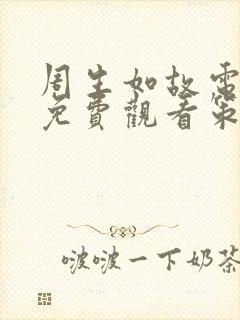 周生如故電
免費觀看第
啵啵一下奶茶